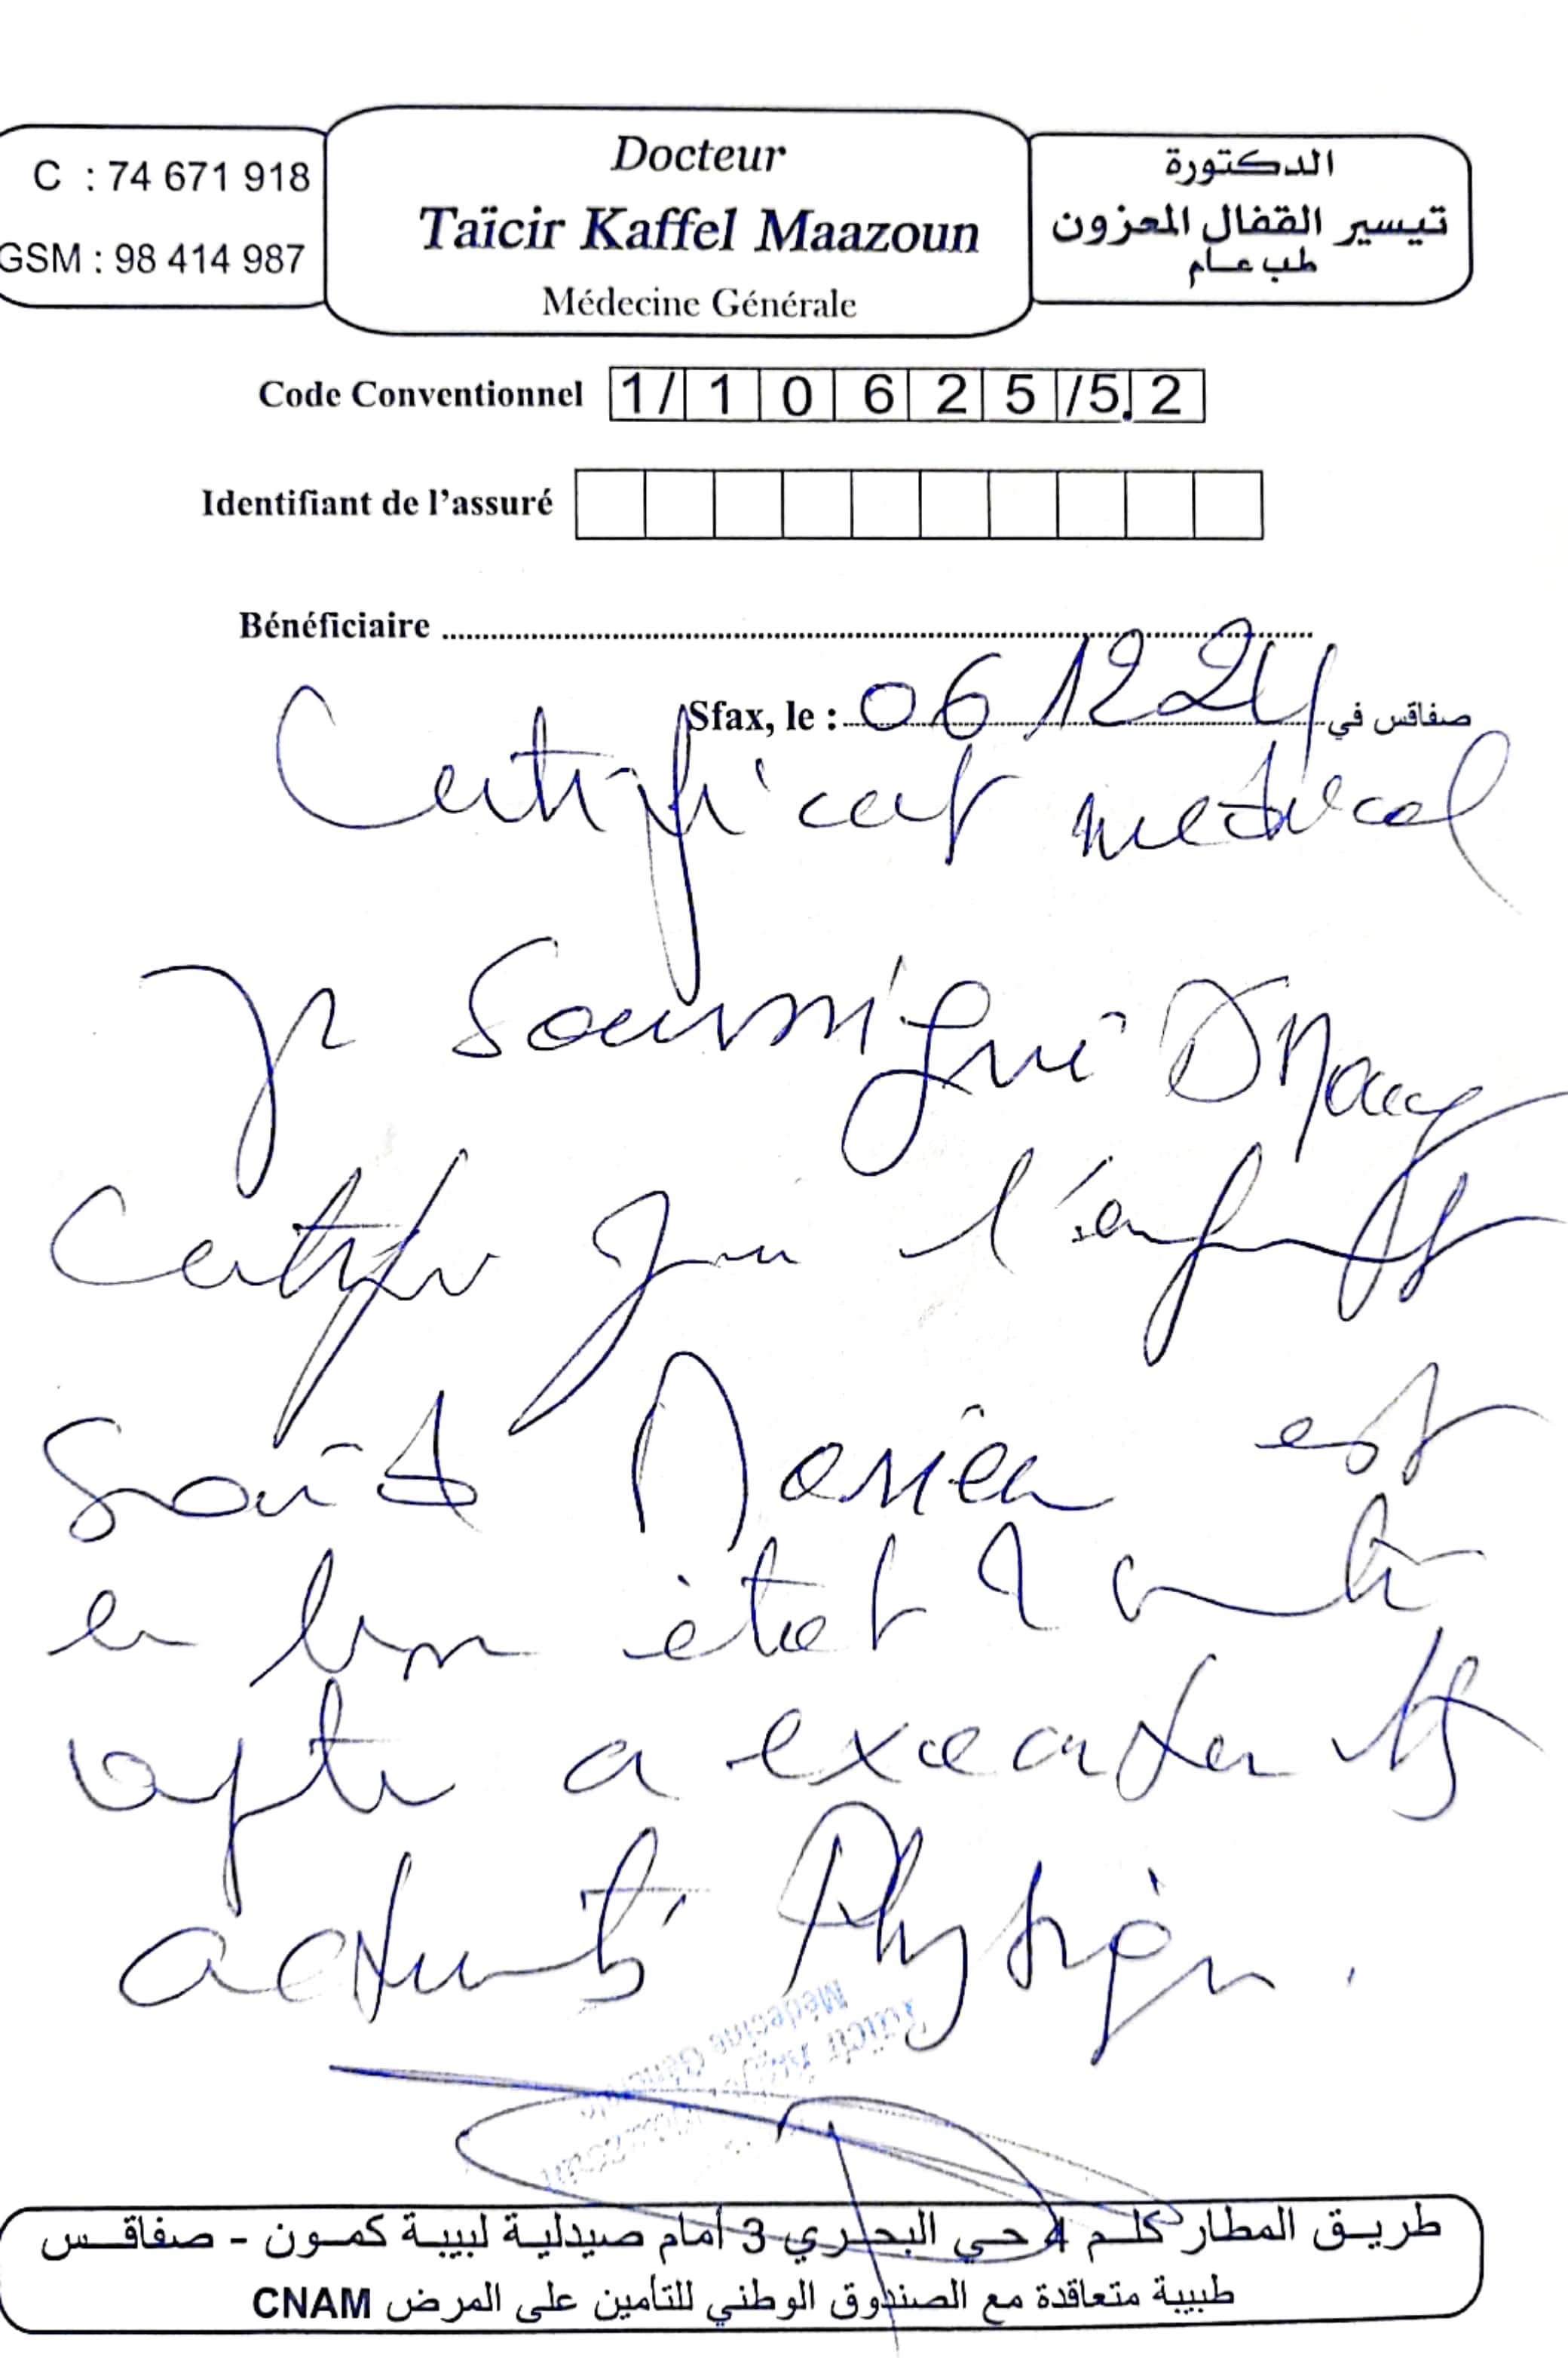 C : 74 671 918
GSM : 98 414 987
Docteur
Taïcir Kaffel Maazoun
Médecine Générale
الدكتورة
تيسير القفال المعزون
طب عام
Code Conventionnel 1/ 1 0 6 2 5 /5. 2
Identifiant de l'assuré
Bénéficiaire
Sfax, le : 06 12 24 صفاقس في
Certificat medical
Je Soussigné Dr
Certifie que l'enfant
est
en bon état de santé
apte a
activité Physique.
Médecine Générale
طريق المطار كلم 4 حي البحري 3 أمام صيدلية لبيبة كمون - صفاقس
طبيبة متعاقدة مع الصندوق الوطني للتأمين على المرض CNAM